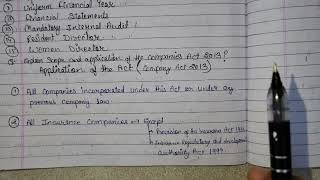 ⑦ Uniform Financial Year
Financial Statements
⑬ Mandatory Internal Audit
⑭ Resident Director
⑮ Women Director
Explain Scope and application of the Companies Act 2013?
Application of the Act (Company Act 2013)
① All Companies incorporated under this Act or under any
previous Company law
② All Insurance Companies Except
Provision of to Insurance Act 19
Insurance Regulatory and development
Authority Act 1999